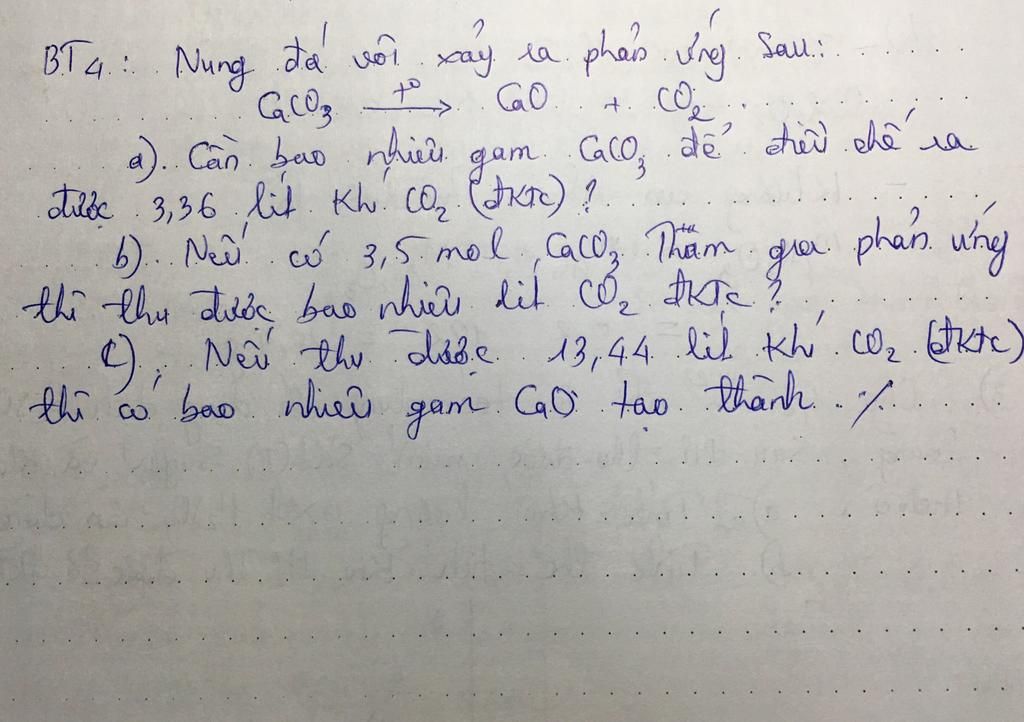 BT4: Nung đá vôi xảy ra phản ứng sau:
CaCO3 —t°→ CaO + CO2
a). Cần bao nhiêu gam CaCO3 để điều chế ra
được 3,36 lít khí CO2 (đktc)?
b). Nếu có 3,5 mol CaCO3 Tham gia phản ứng
thì thu được bao nhiêu lít CO2 đktc?
c). Nếu thu được 13,44 lít khí CO2 (đktc)
thì có bao nhiêu gam CaO tạo thành ./.